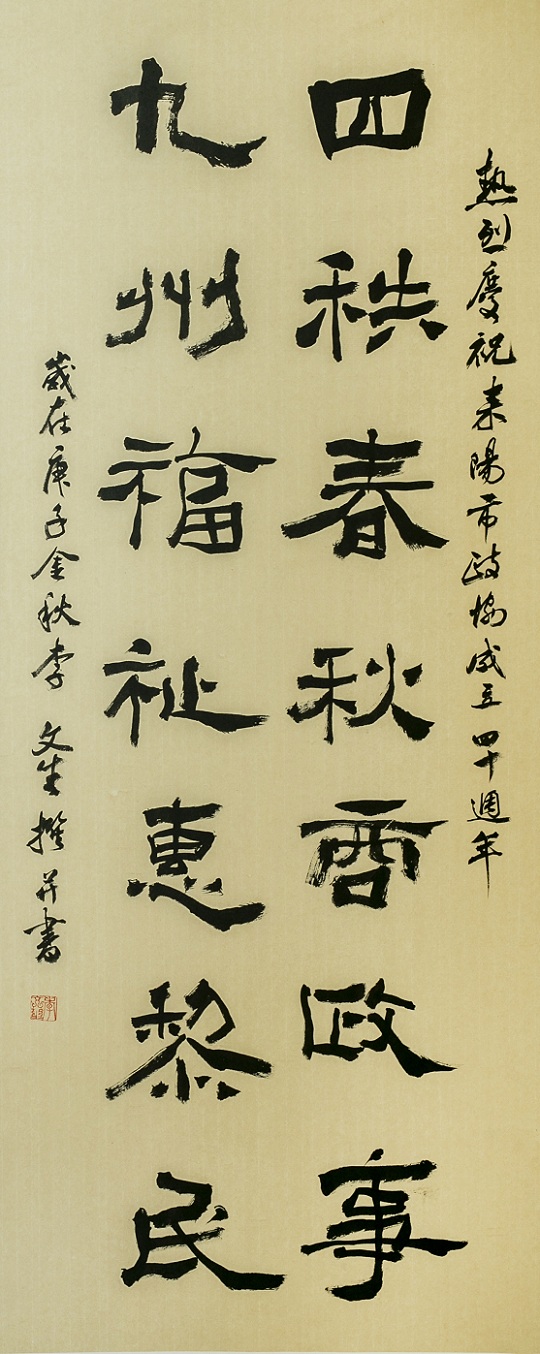 熱烈慶祝耒陽市政協成立四十週年
四秩春秋商政事
九州福祉惠黎民
歲在庚子金秋李文生撰并書